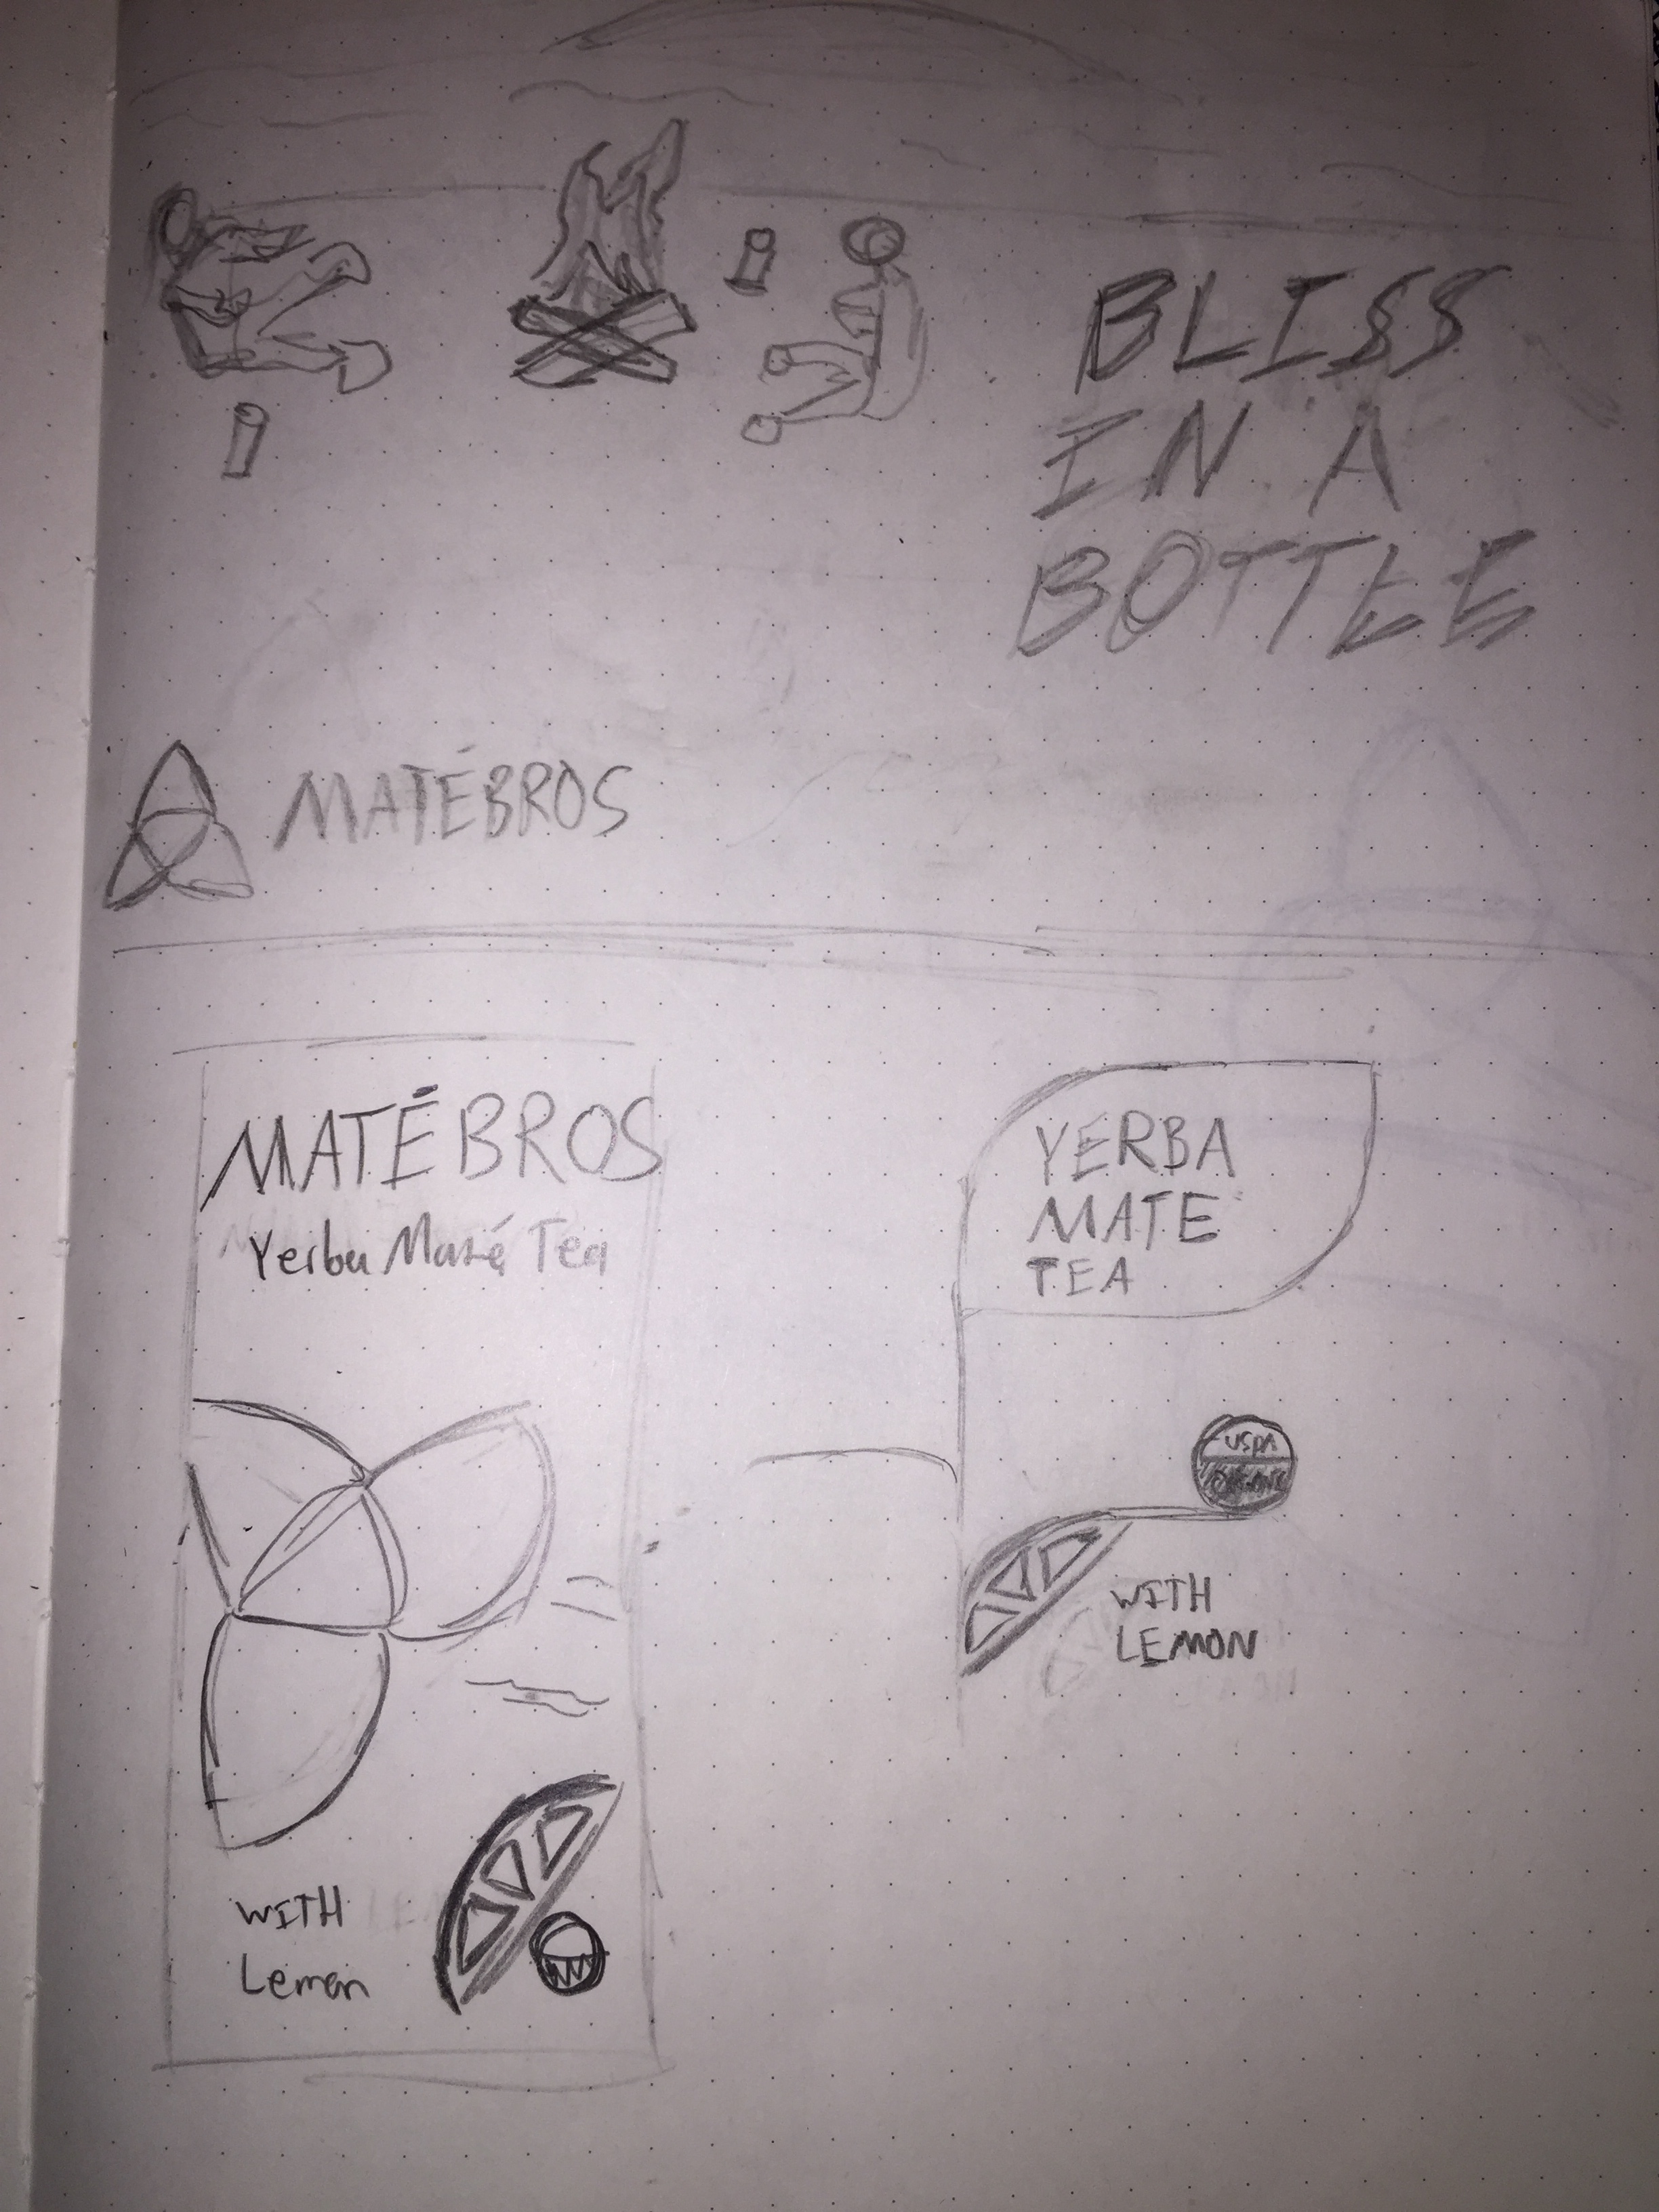 BLISS
IN A
BOTTLE
MATÉBROS
MATÉBROS
Yerba Maté Tea
WITH
Lemon
YERBA
MATE
TEA
USDA
ORGANIC
WITH
LEMON